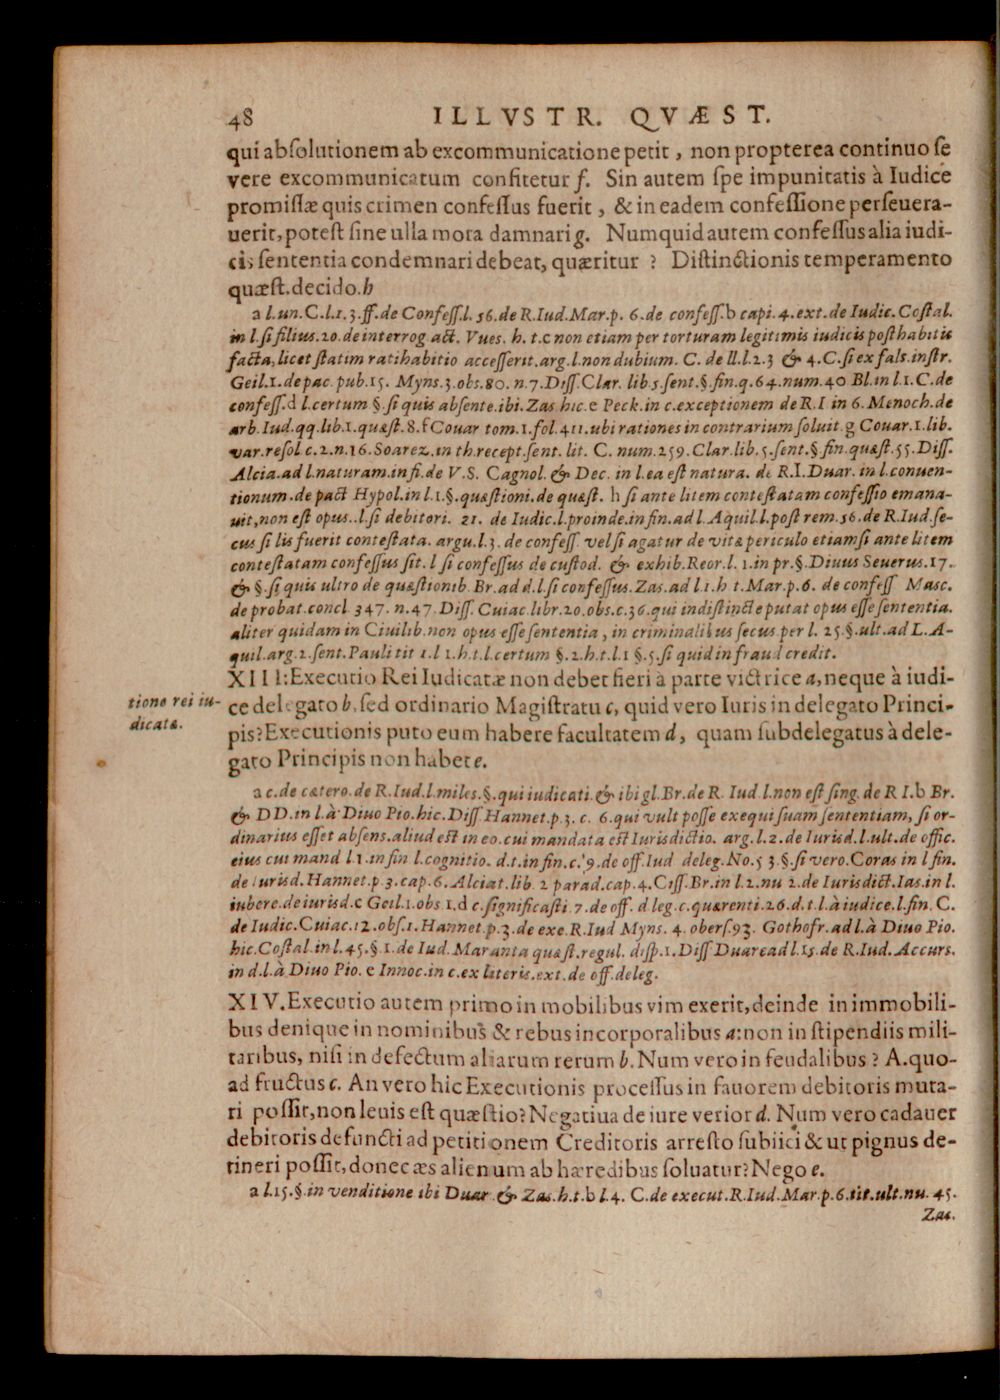 48 ILLVSTR. QVÆST.
qui abſolutionem ab excommunicatione petit, non propterea continuo ſe
vere excommunicatum confitetur f. Sin autem ſpe impunitatis à Iudice
promiſſæ quis crimen confeſſus fuerit, & in eadem confeſſione perſeuera-
uerit, poteſt ſine ulla mora damnari g. Numquid autem confeſſus alia iudi-
cis ſententia condemnari debeat, quæritur ? Diſtinctionis temperamento
quæſt. decido. h
a l. un. C. l. 1. 3. ff. de Confeſſ. l. 56. de R. Iud. Mar. p. 6. de confeſſ. b cap 1. 4. ext. de Iudic. Coſtal.
in l. ſi filius. 20. de interrog. act. Vues. h. t. c non etiam per torturam legitimis iudicis poſthabitis
facta, licet ſtatim ratihabitio acceſſerit. arg. l. non dubium. C. de ll. l. 2. 3 & 4. C. ſi ex falſ. inſtr.
Geil. 1. de pac. pub. 15. Myns. 3. obs. 80. n. 7. Diſſ. Clar. lib 5. ſent. §. fin. q. 64. num. 40 Bl. in l. 1. C. de
confeſſ. d l. certum §. ſi quis abſente. ibi. Zas hic. e Peck. in c. exceptionem de R. I in 6. Menoch. de
arb. Iud. qq. lib. 1. quæſt. 8. f Couar tom. 1. fol. 411. ubi rationes in contrarium ſoluit. g Couar. 1. lib.
var. reſol c. 2. n. 16. Soarez. in th. recept. ſent. lit. C. num. 259. Clar. lib. 5. ſent. §. fin. quæſt. 55. Diſſ.
Alcia. ad l. naturam. in fi. de V. S. Cagnol. & Dec. in l. ea eſt natura. de R. I. Duar. in l. conuen-
tionum. de pact Hypol. in l. 1. §. quæſtioni. de quæſt. h ſi ante litem conteſtatam confeſſio emana-
uit, non eſt opus.. l. ſi debitori. 21. de Iudic. l. proinde. in fin. ad l. Aquil. l. poſt rem. 56. de R. Iud. ſe-
cus ſi lis fuerit conteſtata. argu. l. 3. de confeſſ. vel ſi agatur de vitæ periculo etiamſi ante litem
conteſtatam confeſſus ſit. l ſi confeſſus de cuſtod. & exhib. Reor. l. 1. in pr. §. Diuus Seuerus. 17.
& §. ſi quis ultro de quæſtionib. Br. ad d. l. ſi confeſſus. Zas. ad l. 1. h t. Mar. p. 6. de confeſſ Masc.
de probat. concl. 347. n. 47. Diſſ. Cuiac. libr. 20. obs. c. 36. qui indiſtincte putat opus eſſe ſententia.
aliter quidam in Ciuilib. non opus eſſe ſententia, in criminalibus ſecus. per l. 25. §. ult. ad L. A-
quil. arg. 2. ſent. Pauli tit 1. l 1. h. t. l. certum §. 2. h. t. l. 1 §. 5. ſi quid in fraud credit.
XIII: Executio Rei Iudicatæ non debet fieri à parte victrice a, neque à iudi-
tione rei iu-
dicatæ.
ce delegato b, ſed ordinario Magiſtratu c, quid vero Iuris in delegato Princi-
pis? Executionis puto eum habere facultatem d, quam ſubdelegatus à dele-
gato Principis non habet e.
a c. de cætero. de R. Iud. l. miles. §. qui iudicati. & ibi gl. Br. de R. Iud l. non eſt ſing. de R I. b Br.
& DD. in l. à Diuo Pio. hic. Diſſ Hannet. p. 3. c. 6. qui vult poſſe exequi ſuam ſententiam, ſi or-
dinarius eſſet abſens. aliud est in eo. cui mandata est Iurisdictio. arg. l. 2. de Iurisd. l. ult. de offic.
eius cui mand l. 1. in fin l. cognitio. d. t. in fin. c. 9. de off. Iud deleg. No. 53. §. ſi vero. Coras in l fin.
de Iurisd. Hannet. p 3. cap. 6. Alciat. lib. 2 parad. cap. 4. Ciſſ. Br. in l. 2. nu 2. de Iurisdict. Ias. in l.
iubere. de iurisd. c Geil. 1. obs 1. d c. ſignificaſti. 7. de off. d leg. c. quærenti. 26. d. t. l. à iudice. l. fin. C.
de Iudic. Cuiac. 12. obſ. 1. Hannet. p. 3. de exe. R. Iud Myns. 4. oberſ. 93. Gothofr. ad l. à Diuo Pio.
hic. Coſtal. in l. 45. §. 1. de Iud. Maranta quæſt. regul. diſp. 1. Diſſ Duare ad l. 15. de R. Iud. Accurs.
in d. l. à Diuo Pio. e Innoc. in c. ex literis. ext. de off. deleg.
XIV. Executio autem primo in mobilibus vim exerit, deinde in immobili-
bus denique in nominibus & rebus incorporalibus a: non in ſtipendiis mili-
taribus, niſi in defectum aliarum rerum b. Num vero in feudalibus? A. quo-
ad fructus c. An vero hic Executionis proceſſus in fauorem debitoris muta-
ri poſſit, non leuis eſt quæſtio? Negatiua de iure verior d. Num vero cadauer
debitoris defuncti ad petitionem Creditoris arreſto ſubiici & ut pignus de-
tineri poſſit, donec æs alienum ab hæredibus ſoluatur? Nego e.
a l. 15. §. in venditione ibi Duar. & Zas. h. t. b l. 4. C. de execut. R. Iud. Mar. p. 6. tit. ult. nu. 45.
Zas.